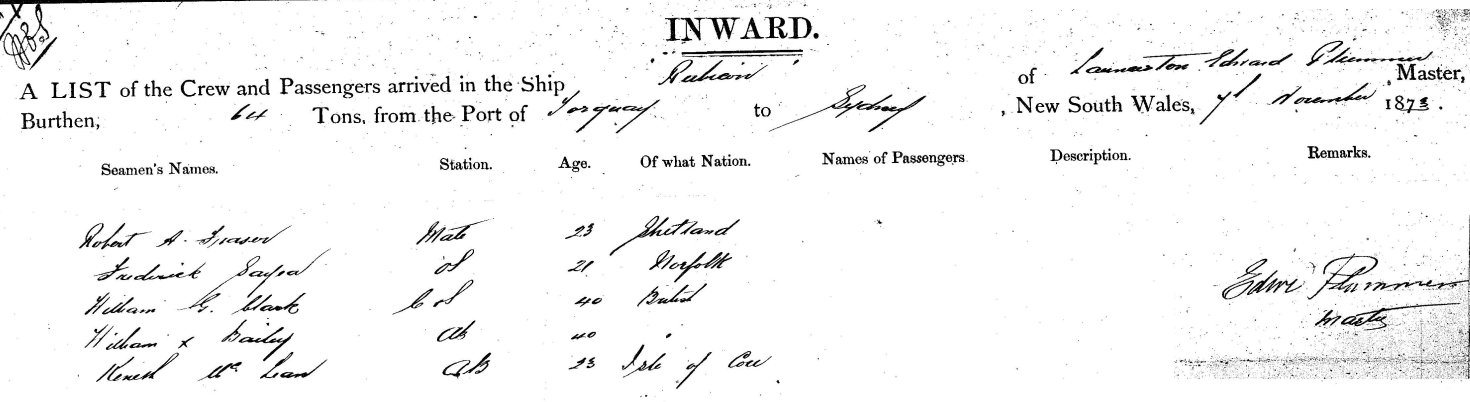 INWARD.
A LIST of the Crew and Passengers arrived in the Ship of Launceston Edward Plummer, Master,
Burthen, 64 Tons, from the Port of Torquay to Sydney, New South Wales, 7th November 1873.
Seamen's Names. Station. Age. Of what Nation. Names of Passengers Description. Remarks.
Robert A. Fraser Mate 23 Shetland
Frederick OS 21 Norfolk
William G. Clark 40 British
William x Bailey AB 40 "
Keneth Mc Lean AB 23 Isle of
Edwd Plummer
Master